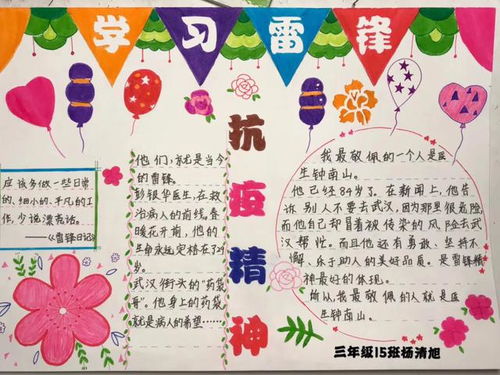 学习雷锋
抗疫精神
应该多做一些日常
的、细小的、平凡的工
作，少说漂亮话。
——《雷锋日记》
他们，就是当今
的雷锋。
彭银华医生，在救
治病人的前线，春
暖花开前，他的
生命永远定格在了29
岁。
武汉街头的"药袋
哥"。他身上的药袋
就是病人的希望……
我最敬佩的一个人是医
生钟南山。
他已经84岁了。在新闻上，他告
诉别人不要去武汉，因为那里很危险，
而他自己却冒着被传染的风险去武
汉帮忙。而且他还有勇敢、坚持不
懈、乐于助人的美好品质。是雷锋精
神最好的体现。
所以，我最敬佩的人就是医
生钟南山。
三年级15班杨清旭